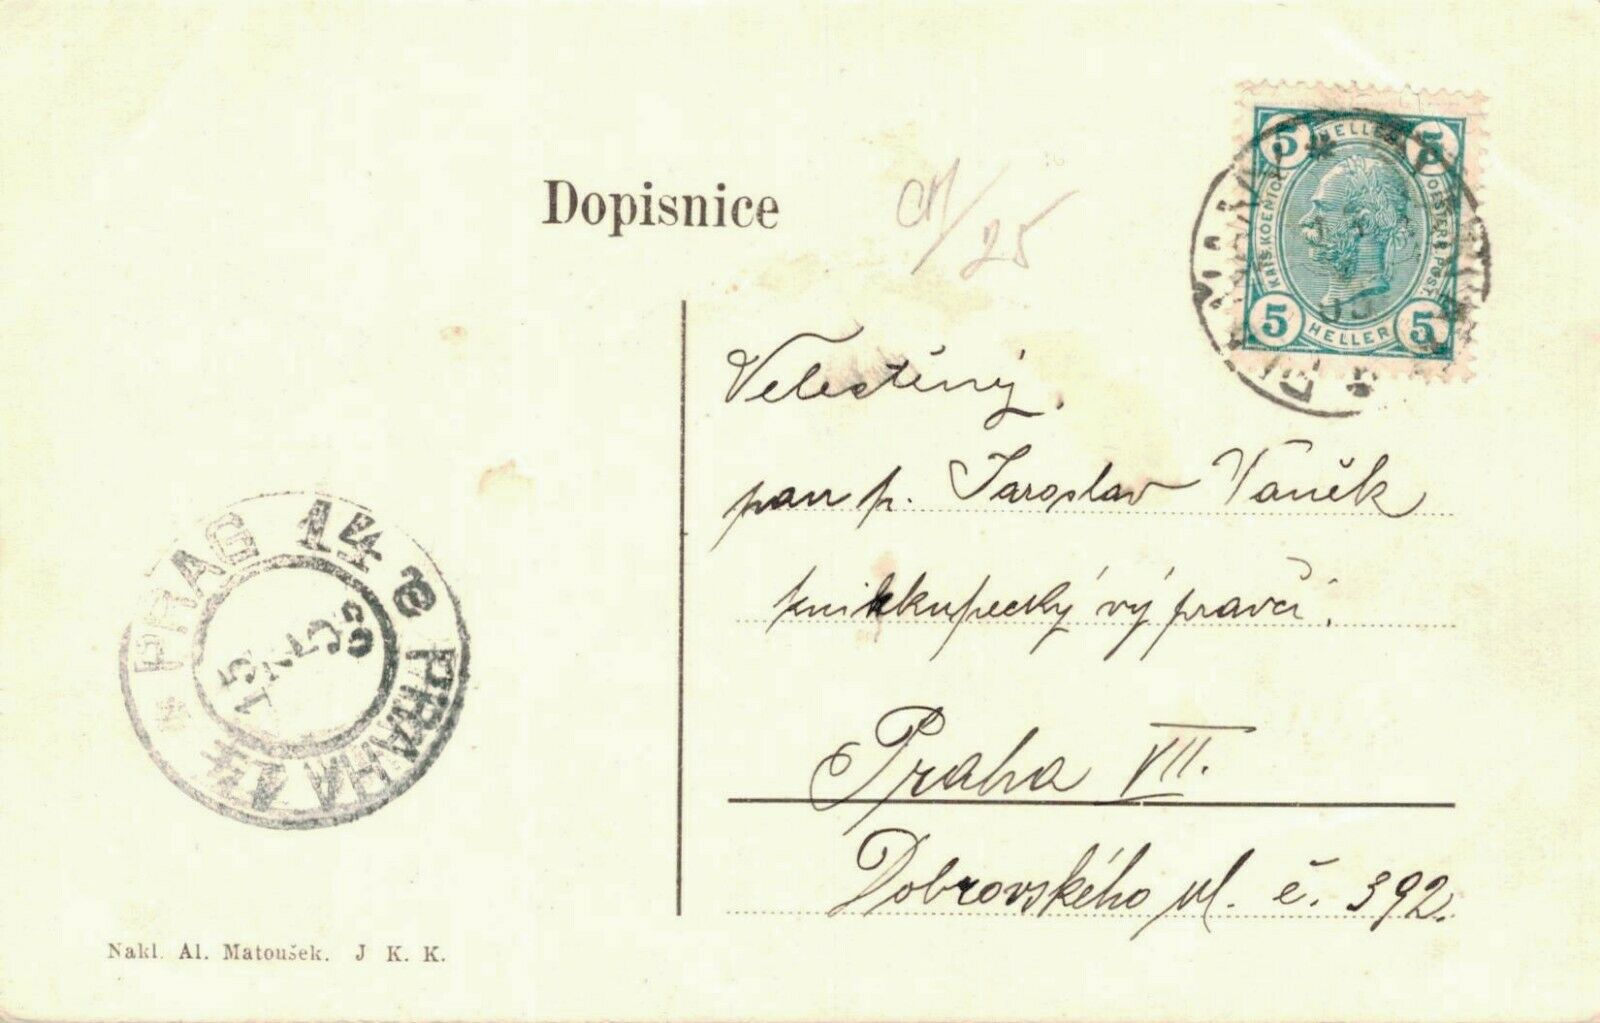 Dopisnice
25
5 HELLER 5
KAIS. KOENIGL. OESTERR. POST.
5 HELLER 5
Velectěný
pan p. Jaroslav Vaněk
knihkupecký výpravčí,
Praha VII.
Dobrovského ul. č. 392.
PRAG 14 PRAHA 14
Nakl. Al. Matoušek. J K. K.